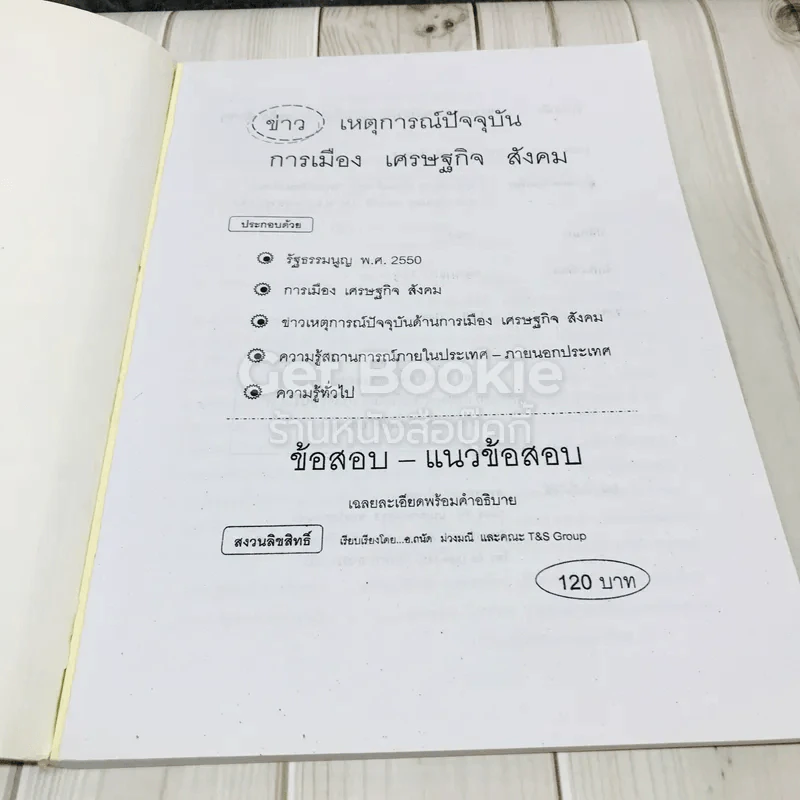 ข่าว เหตุการณ์ปัจจุบัน
การเมือง เศรษฐกิจ สังคม
ประกอบด้วย
รัฐธรรมนูญ พ.ศ. 2550
การเมือง เศรษฐกิจ สังคม
ข่าวเหตุการณ์ปัจจุบันด้านการเมือง เศรษฐกิจ สังคม
ความรู้สถานการณ์ภายในประเทศ – ภายนอกประเทศ
Get Bookie
ความรู้ทั่วไป
ร้านหนังสือบุ๊คกี้
ข้อสอบ – แนวข้อสอบ
เฉลยละเอียดพร้อมคำอธิบาย
สงวนลิขสิทธิ์ เรียบเรียงโดย...อ.ถนัด ม่วงมณี และคณะ T&S Group
120 บาท